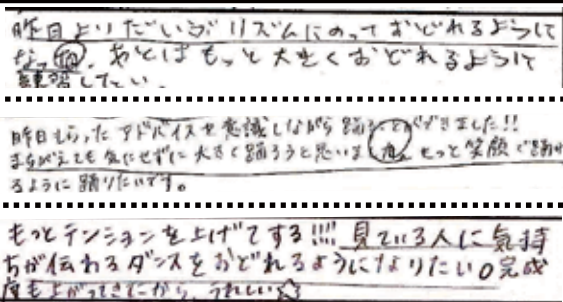 昨日よりだいぶリズムにのっておどれるように
なった。あとはもっと大きくおどれるように
練習したい。
昨日もらったアドバイスを意識しながら踊ることができました!!
まちがえても気にせずに大きく踊ろうと思います。もっと笑顔で踊れ
るように踊りたいです。
もっとテンションを上げてする!!!! 見ている人に気持
ちが伝わるダンスをおどれるようになりたい。完成
度も上がってきたから、うれしい☆